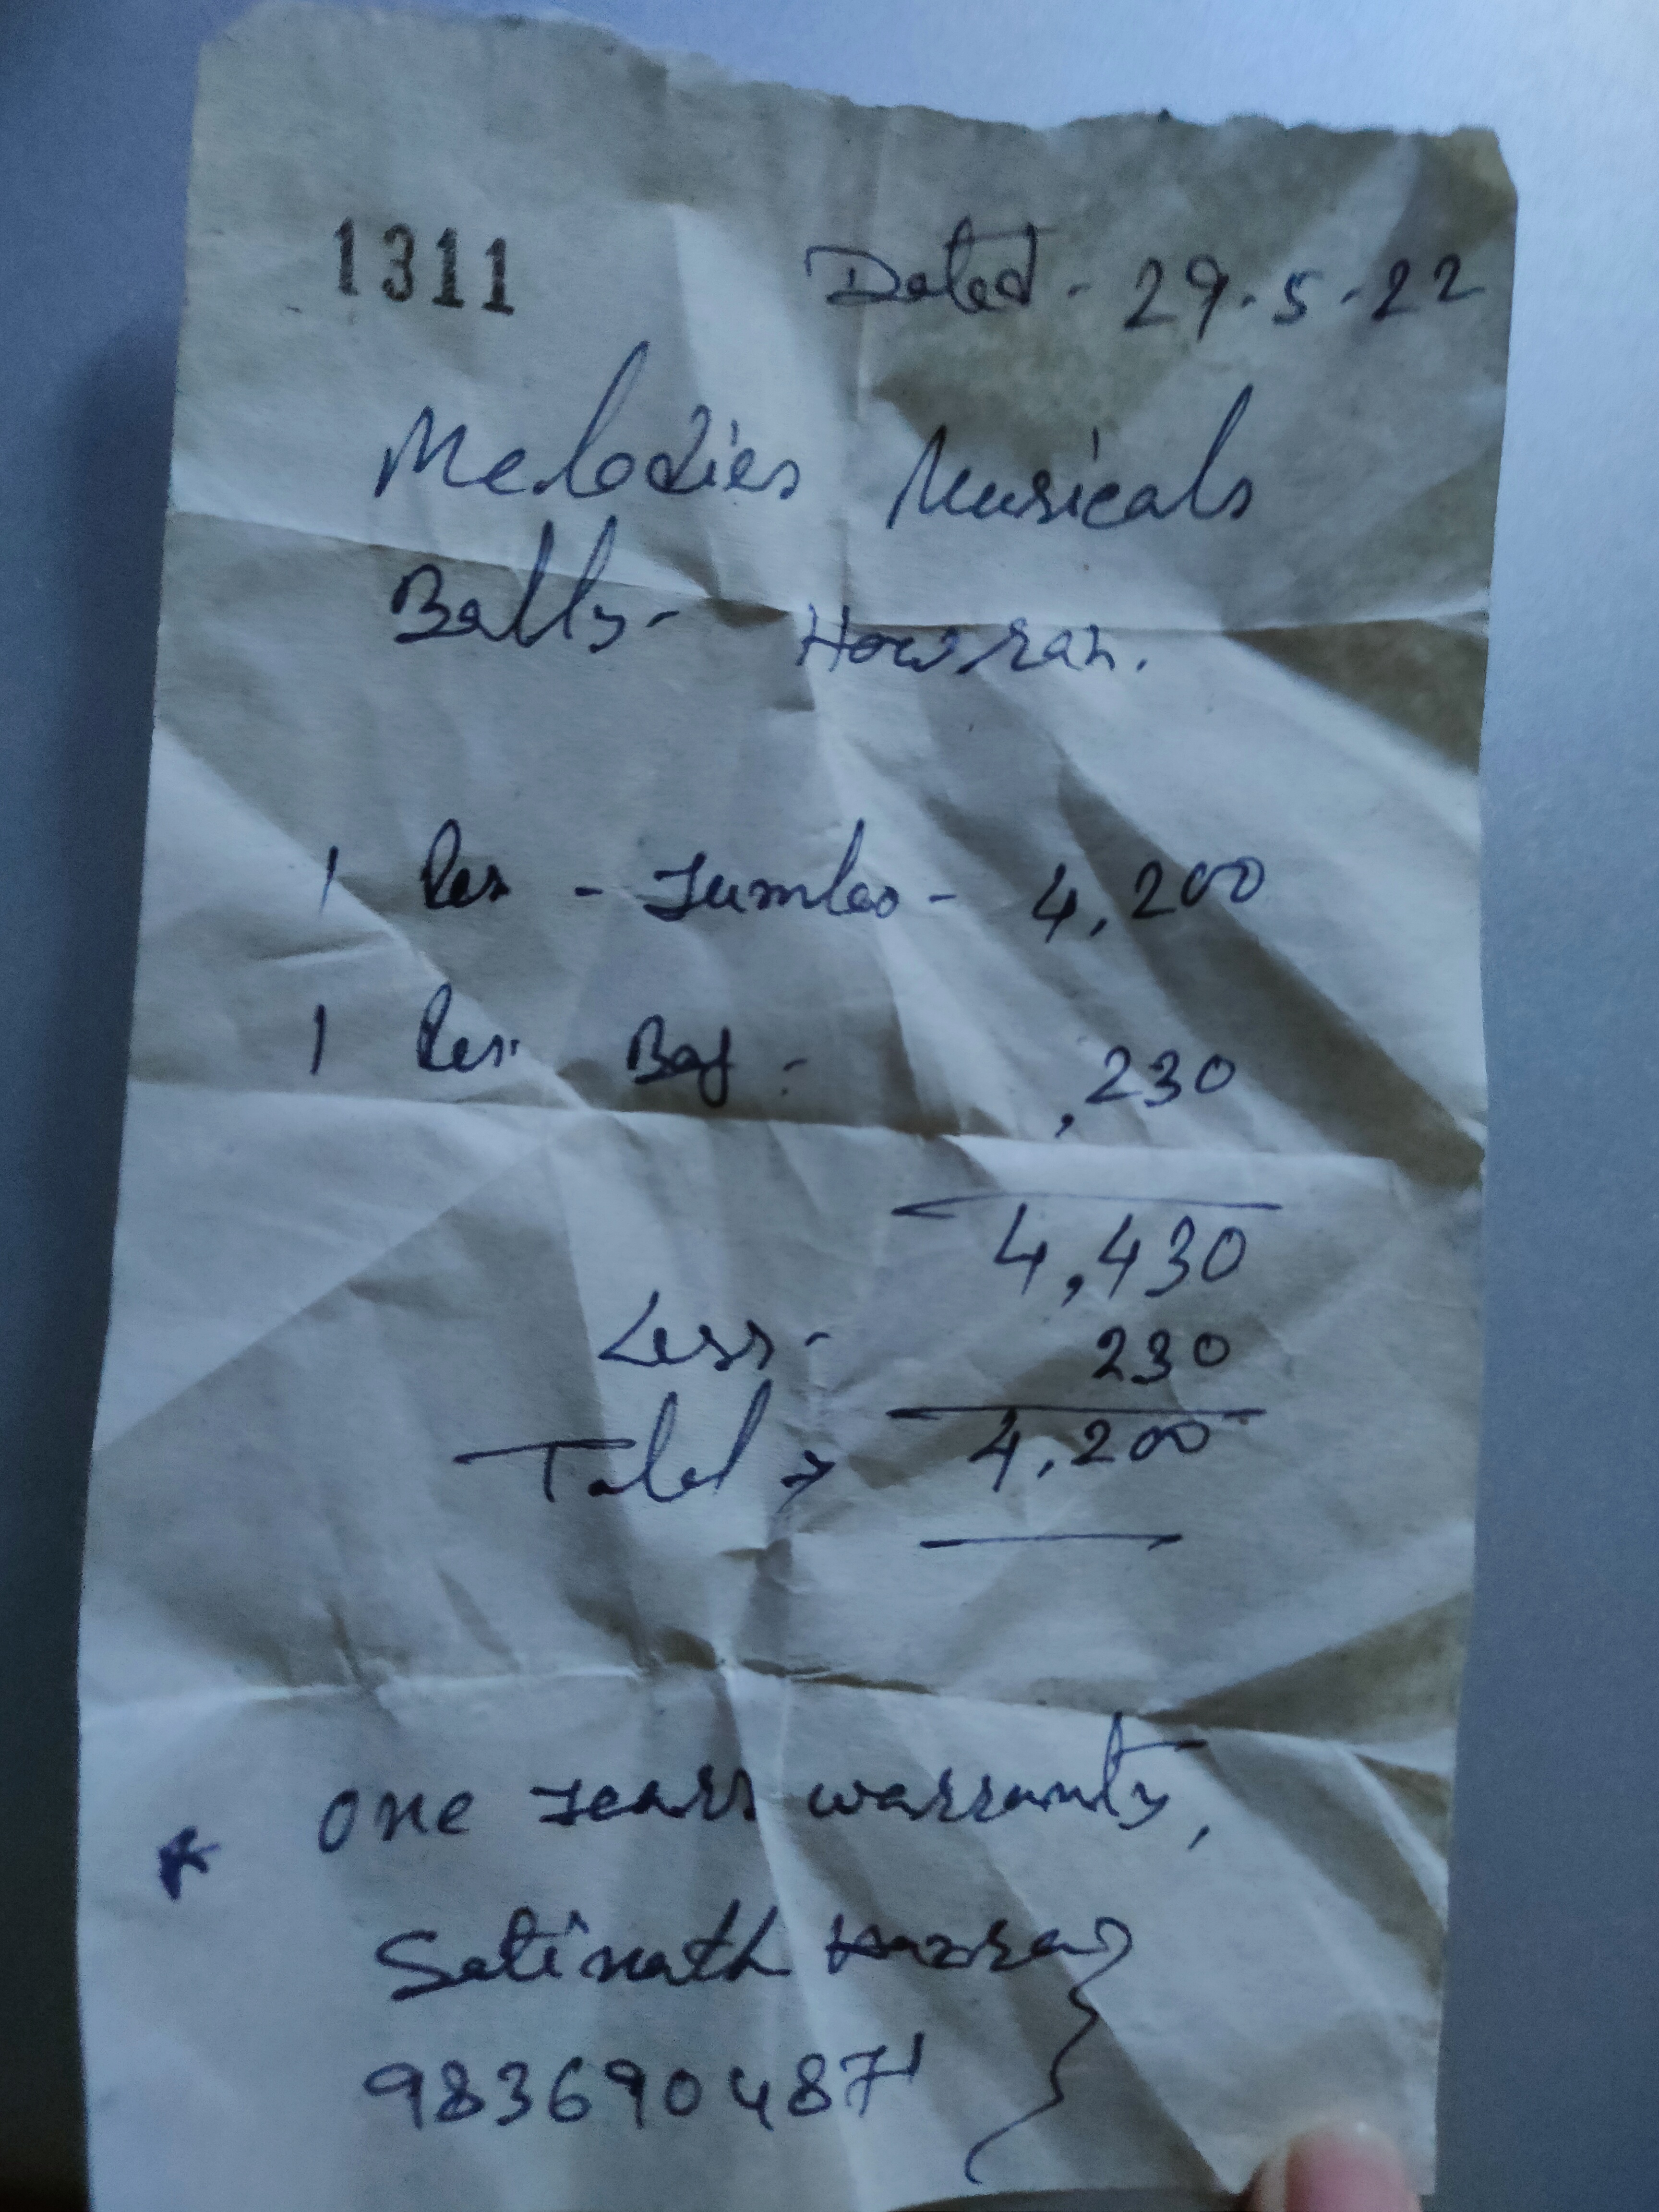 1311 Dated - 29.5.22
Melodies Musicals
Bally - Howrah.
1 Pes - Jumbo - 4,200
1 Pes. Bag - ,230
4,430
Less - 230
Total → 4,200
one years warranty,
Satinath
9836904871